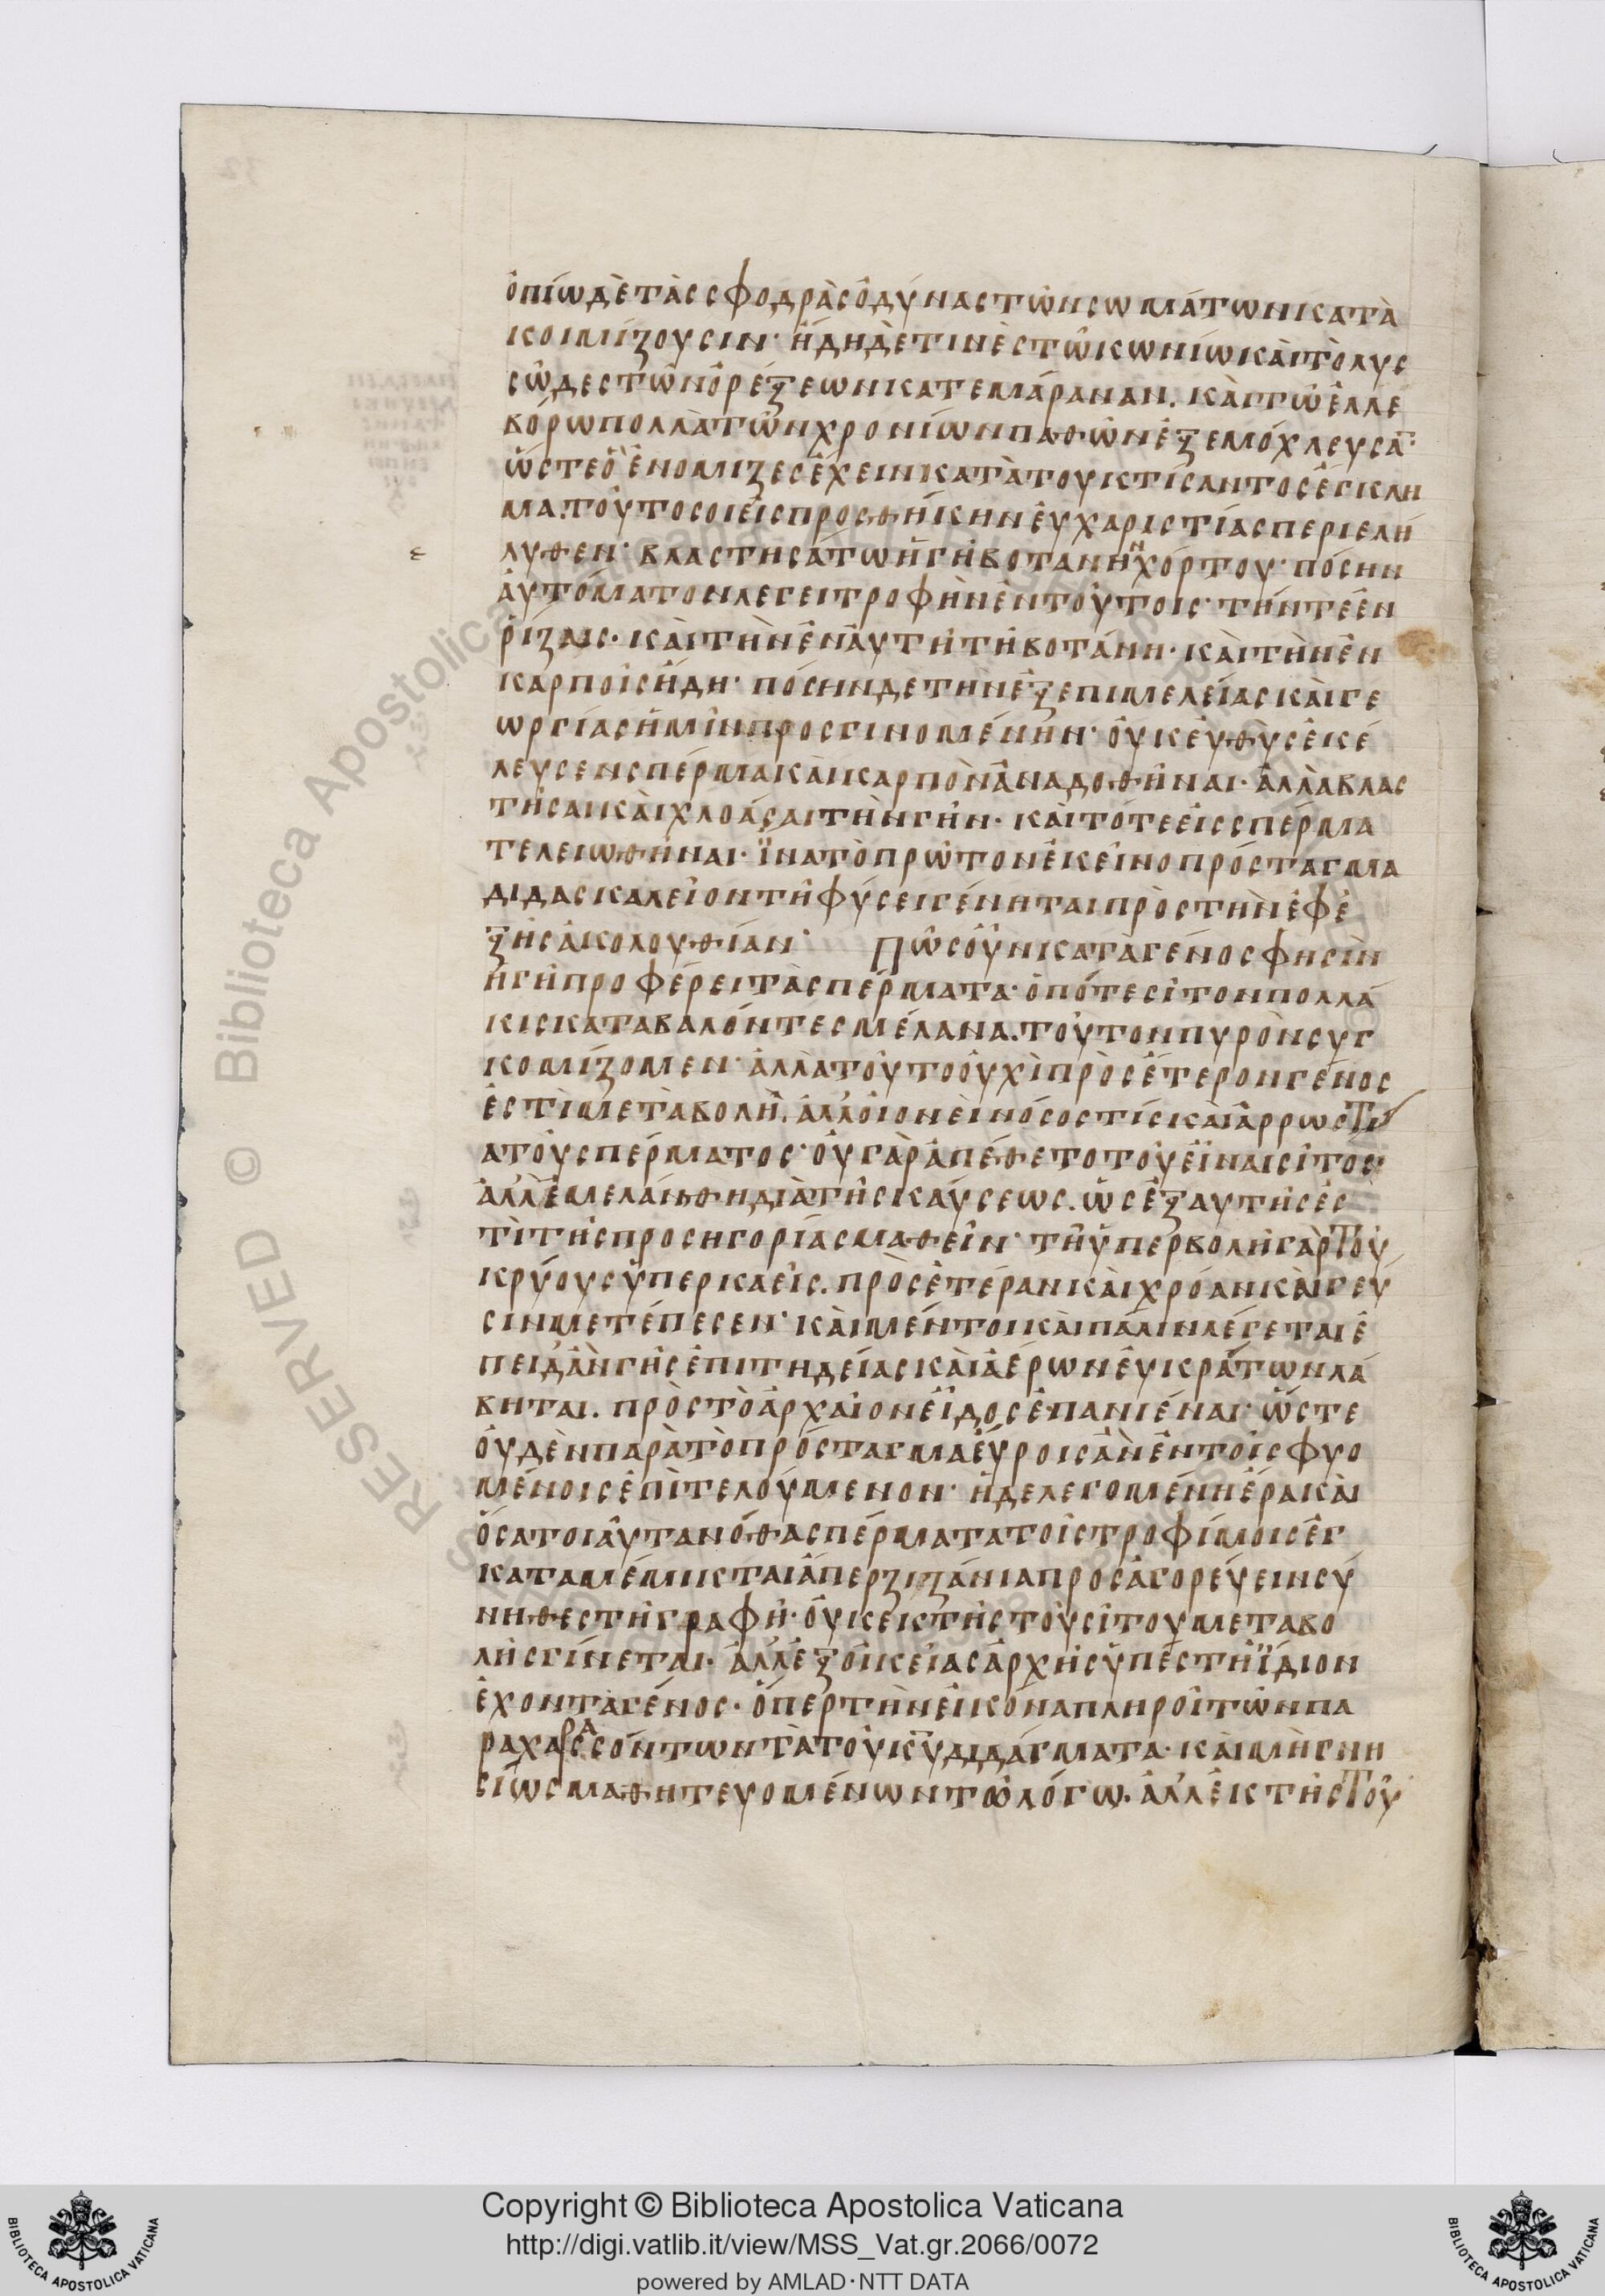 ὀπίω δὲ τὰς σφοδρὰς ὀδύνας τῶν σωμάτων κατα
κοιμίζουσιν· ἤδη δέ τινες τῶ κωνίω καὶ τὸ λυσ
σῶδες τῶν ὀρέξεων κατεμάραναν. καὶ τῶ ἐλλε
βόρω πολλὰ τῶν χρονίων παθῶν ἐξεμόχλευσα̅·
ὥστε ὃ ἐνόμιζες ἔχειν κατὰ τοῦ κτίσαντος ἔγκλη
μα. τοῦτό σοι εἰς προσθήκην εὐχαριστίας περιελή
λυθεν· βλαστησάτω ἡ γῆ βοτάνην χόρτου· πόσην
αὐτόματον λέγει τροφὴν ἐν τούτοις· τήν τε ἐν
ῥίζαις. καὶ τὴν ἐν αὐτῆ τῆ βοτάνη. καὶ τὴν ἐν
καρποῖς ἤδη· πόσην δὲ τὴν ἐξ ἐπιμελείας καὶ γε
ωργίας ἡμῖν προσγινομένην· οὐκ εὐθὺς ἐκέ
λευσεν σπέρμα καὶ καρπὸν ἀναδοθῆναι. ἀλλὰ βλασ
τῆσαι καὶ χλοάσαι τὴν γῆν. καὶ τότε εἰς σπέρμα
τελειωθῆναι. ἵνα τὸ πρῶτον ἐκεῖνο πρόσταγμα
διδασκαλεῖον τῆ φύσει γένηται πρὸς τὴν ἐφε
ξῆς ἀκολουθίαν· Πῶς οὖν κατὰ γένος φησὶν
ἡ γῆ προφέρει τὰ σπέρματα. ὁπότε σῖτον πολλά
κις καταβαλόντες μέλανα. τοῦτον πυρὸν συγ
κομίζομεν· ἀλλὰ τοῦτο οὐχὶ πρὸς ἕτερον γένος
ἐστὶ μεταβολή. ἀλλ' οἱονεὶ νόσος τίς καὶ ἀρρωστί
α τοῦ σπέρματος· οὐ γὰρ ἀπέθετο τοῦ εἶναι σῖτος·
ἀλλ' ἐμελάνθη διὰ τῆς καύσεως. ὡς ἐξ αὐτῆς ἐς
τὶ τῆς προσηγορίας μαθεῖν· τῆ ὑπερβολῆ γὰρ τοῦ
κρύους ὑπερκαεὶς. πρὸς ἑτέραν καὶ χρόαν καὶ γεῦ
σιν μετέπεσεν· καὶ μέντοι καὶ πάλιν λέγεται ἐ
πειδ' ἂν γῆς ἐπιτηδείας καὶ ἀέρων εὐκράτων λά
βηται. πρὸς τὸ ἀρχαῖον εἶδος ἐπανιέναι· ὥστε
οὐδὲν παρὰ τὸ πρόσταγμα εὕροις ἂν ἐν τοῖς φυο
μένοις ἐπιτελούμενον· ἡ δὲ λεγομένη ἔρα καὶ
ὅσα τοιαῦτα νόθα σπέρματα τοῖς τροφίμοις ἐγ
καταμέμικται ἅπερ ζιζάνια προσαγορεύειν σύ
νηθες τῆ γραφῆ· οὐκ ἐκ τῆς τοῦ σίτου μεταβο
λῆς γίνεται. ἀλλ' ἐξ οἰκείας ἀρχῆς ὑπέστη ἴδιον
ἔχοντα γένος. ὅπερ τὴν εἰκόνα πληροῖ τῶν πα
ραχαρασσόντων τὰ τοῦ κ̅υ̅ διδάγματα. καὶ μὴ γνη
σίως μαθητευομένων τῶ λόγω. ἀλλ' ἐκ τῆς τοῦ
ε
Copyright © Biblioteca Apostolica Vaticana
http://digi.vatlib.it/view/MSS_Vat.gr.2066/0072
powered by AMLAD·NTT DATA